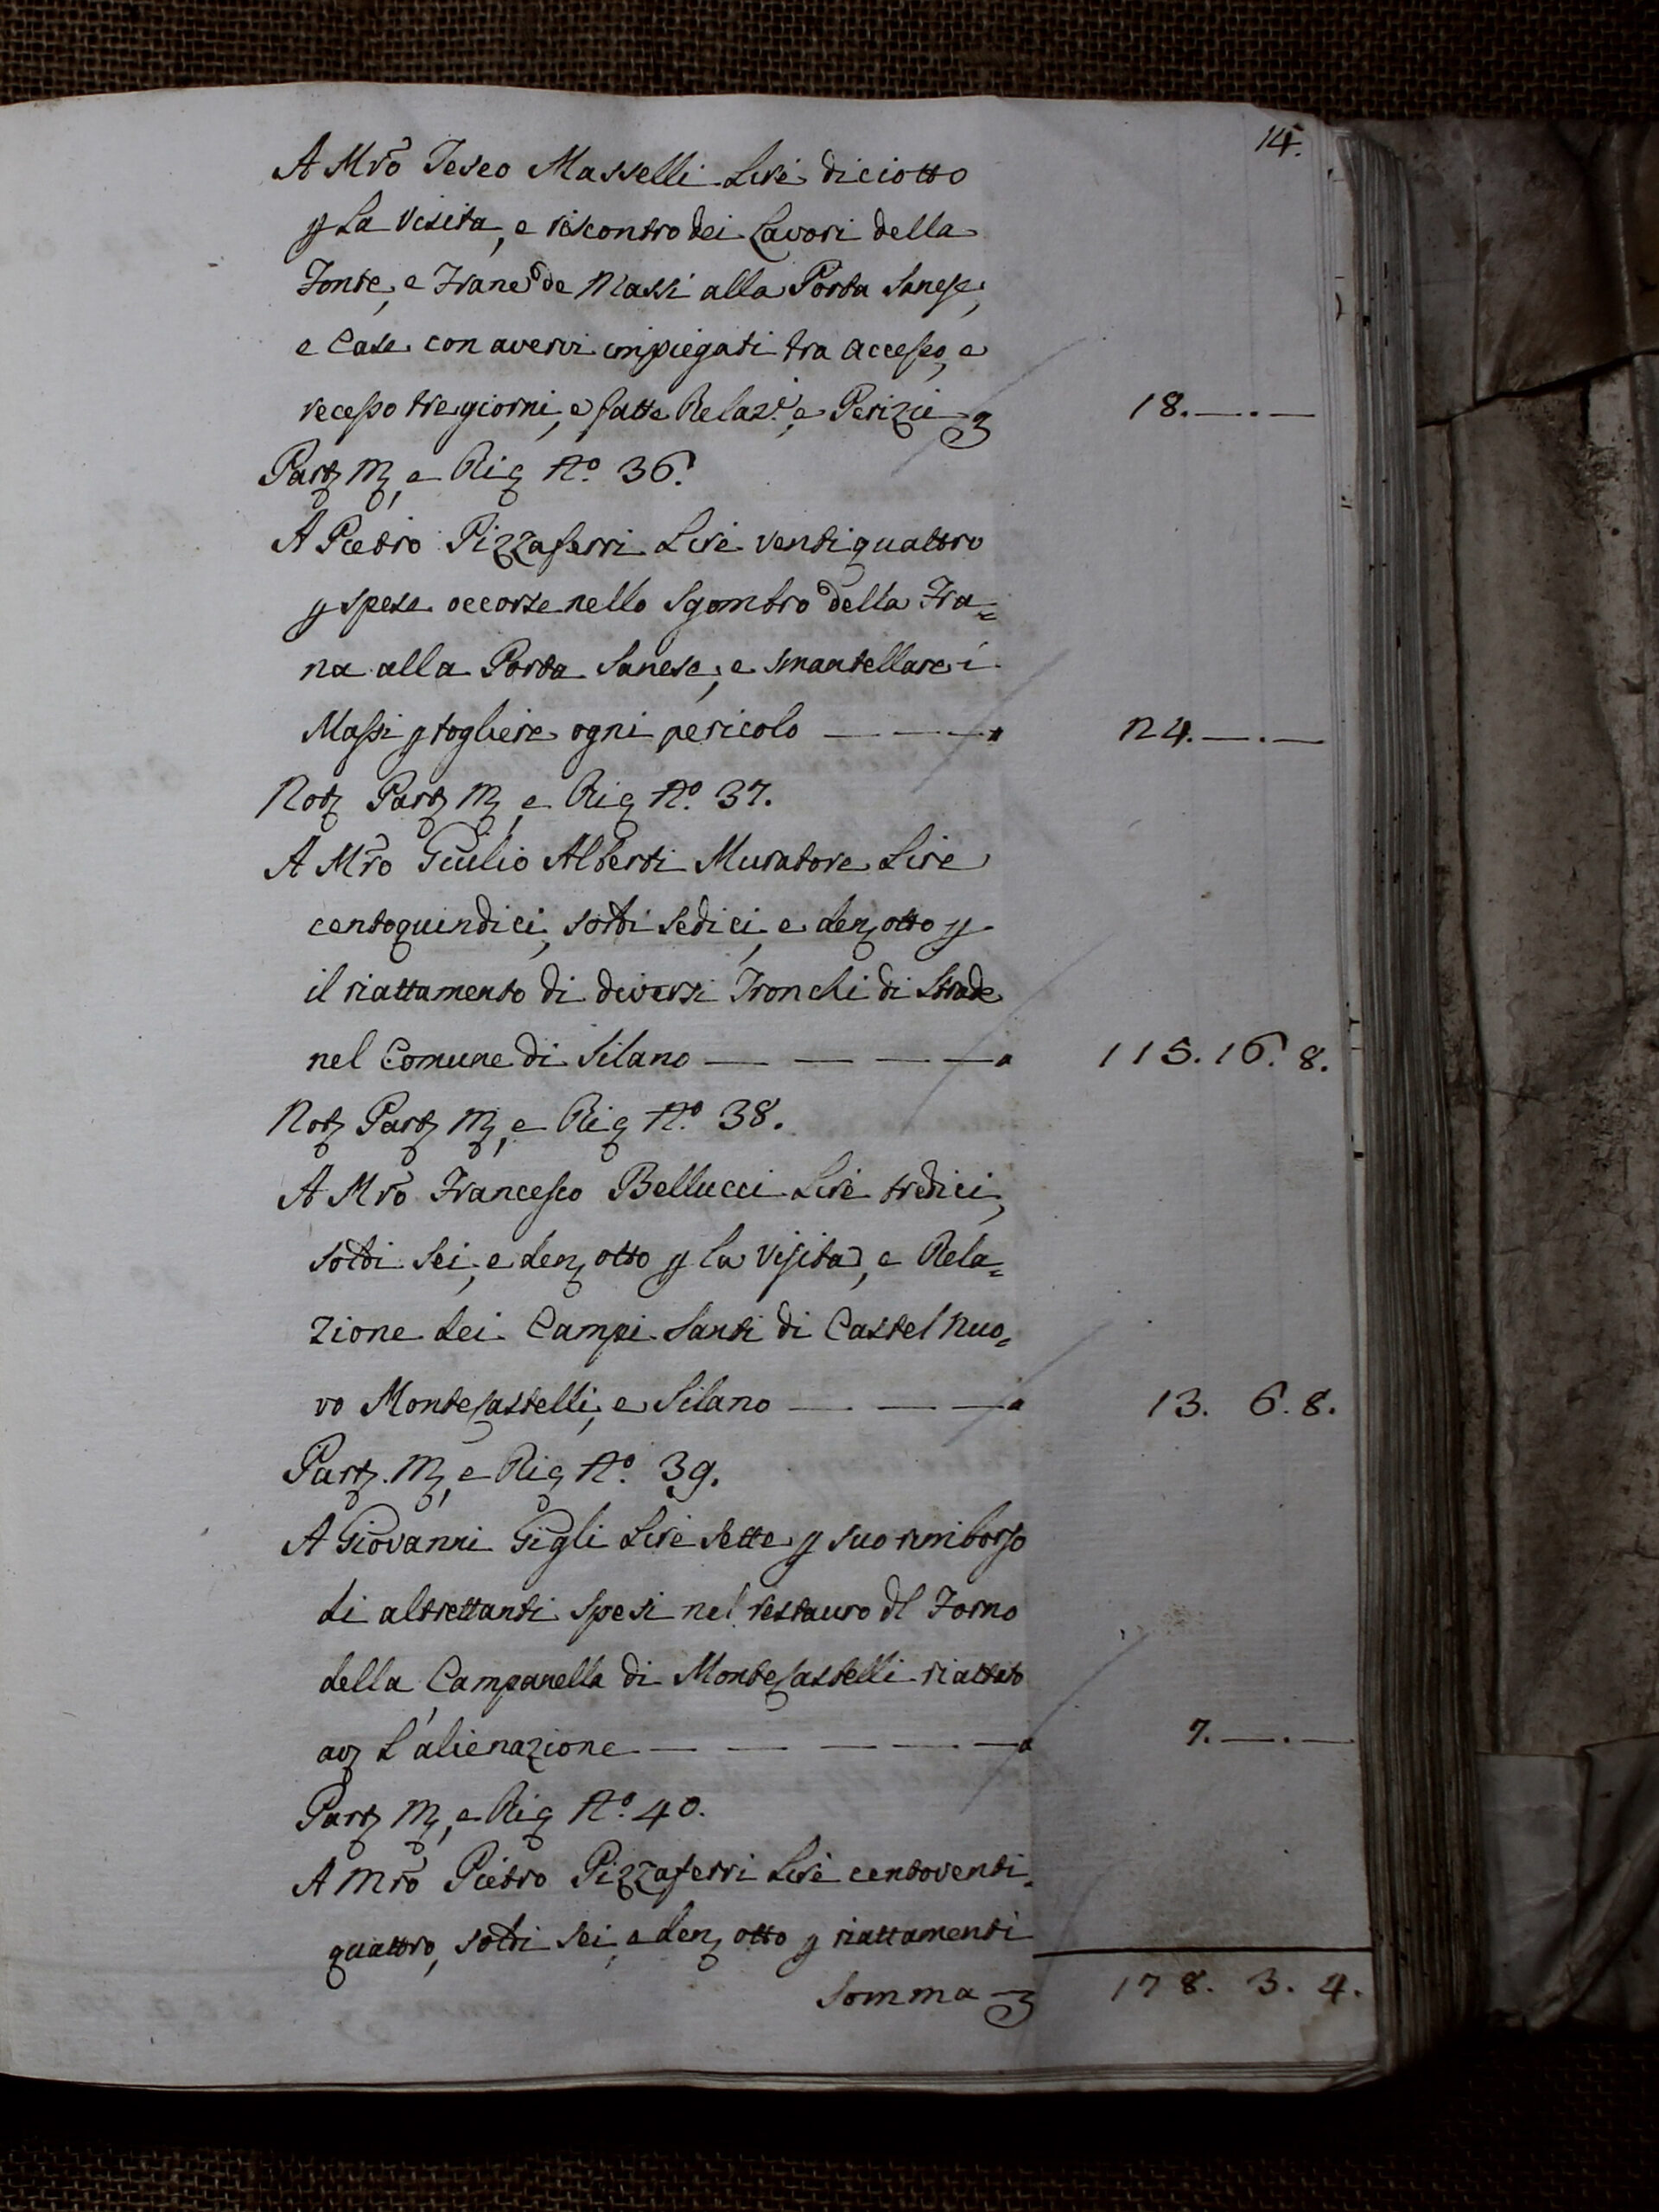 14.
A Mrõ Teseo Masselli Lire diciotto
p La visita, e riscontro dei Lavori della
Fonte, e Frane de Massi alla Porta Sanese,
e Case con avervi impiegati tra accesso, e
recesso tre giorni, e fatte Relazi, e Perizie 18.—.—
Part M, e Rig N.o 36.
A Pietro Pizzaferri Lire ventiquattro
p spese occorse nello Sgombro della Fra=
na alla Porta Sanese, e smantellare i
Massi p togliere ogni pericolo — — — 24.—.—
Not Part M, e Rig N.o 37.
A Mrõ Giulio Alberti Muratore Lire
centoquindici, soldi sedici, e den otto p
il riattamento di diversi Tronchi di Strade
nel Comune di Silano — — — — 115.16.8.
Not Part M, e Rig N.o 38.
A Mrõ Francesco Bellucci Lire tredici,
soldi sei, e den otto p la visita, e Rela=
zione dei Campi Santi di Castel nuo=
vo Montecastelli, e Silano — — — 13. 6.8.
Part. M, e Rig N.o 39.
A Giovanni Gigli Lire sette p suo rimborso
di altrettanti spesi nel restauro dl Forno
della Campanella di Montecastelli riattato
av L'alienazione — — — — — 7.—.—
Part M, e Rig N.o 40.
A Mrõ Pietro Pizzaferri Lire centoventi=
quattro, soldi sei, e den otto p riattamenti
Somma 178. 3. 4.